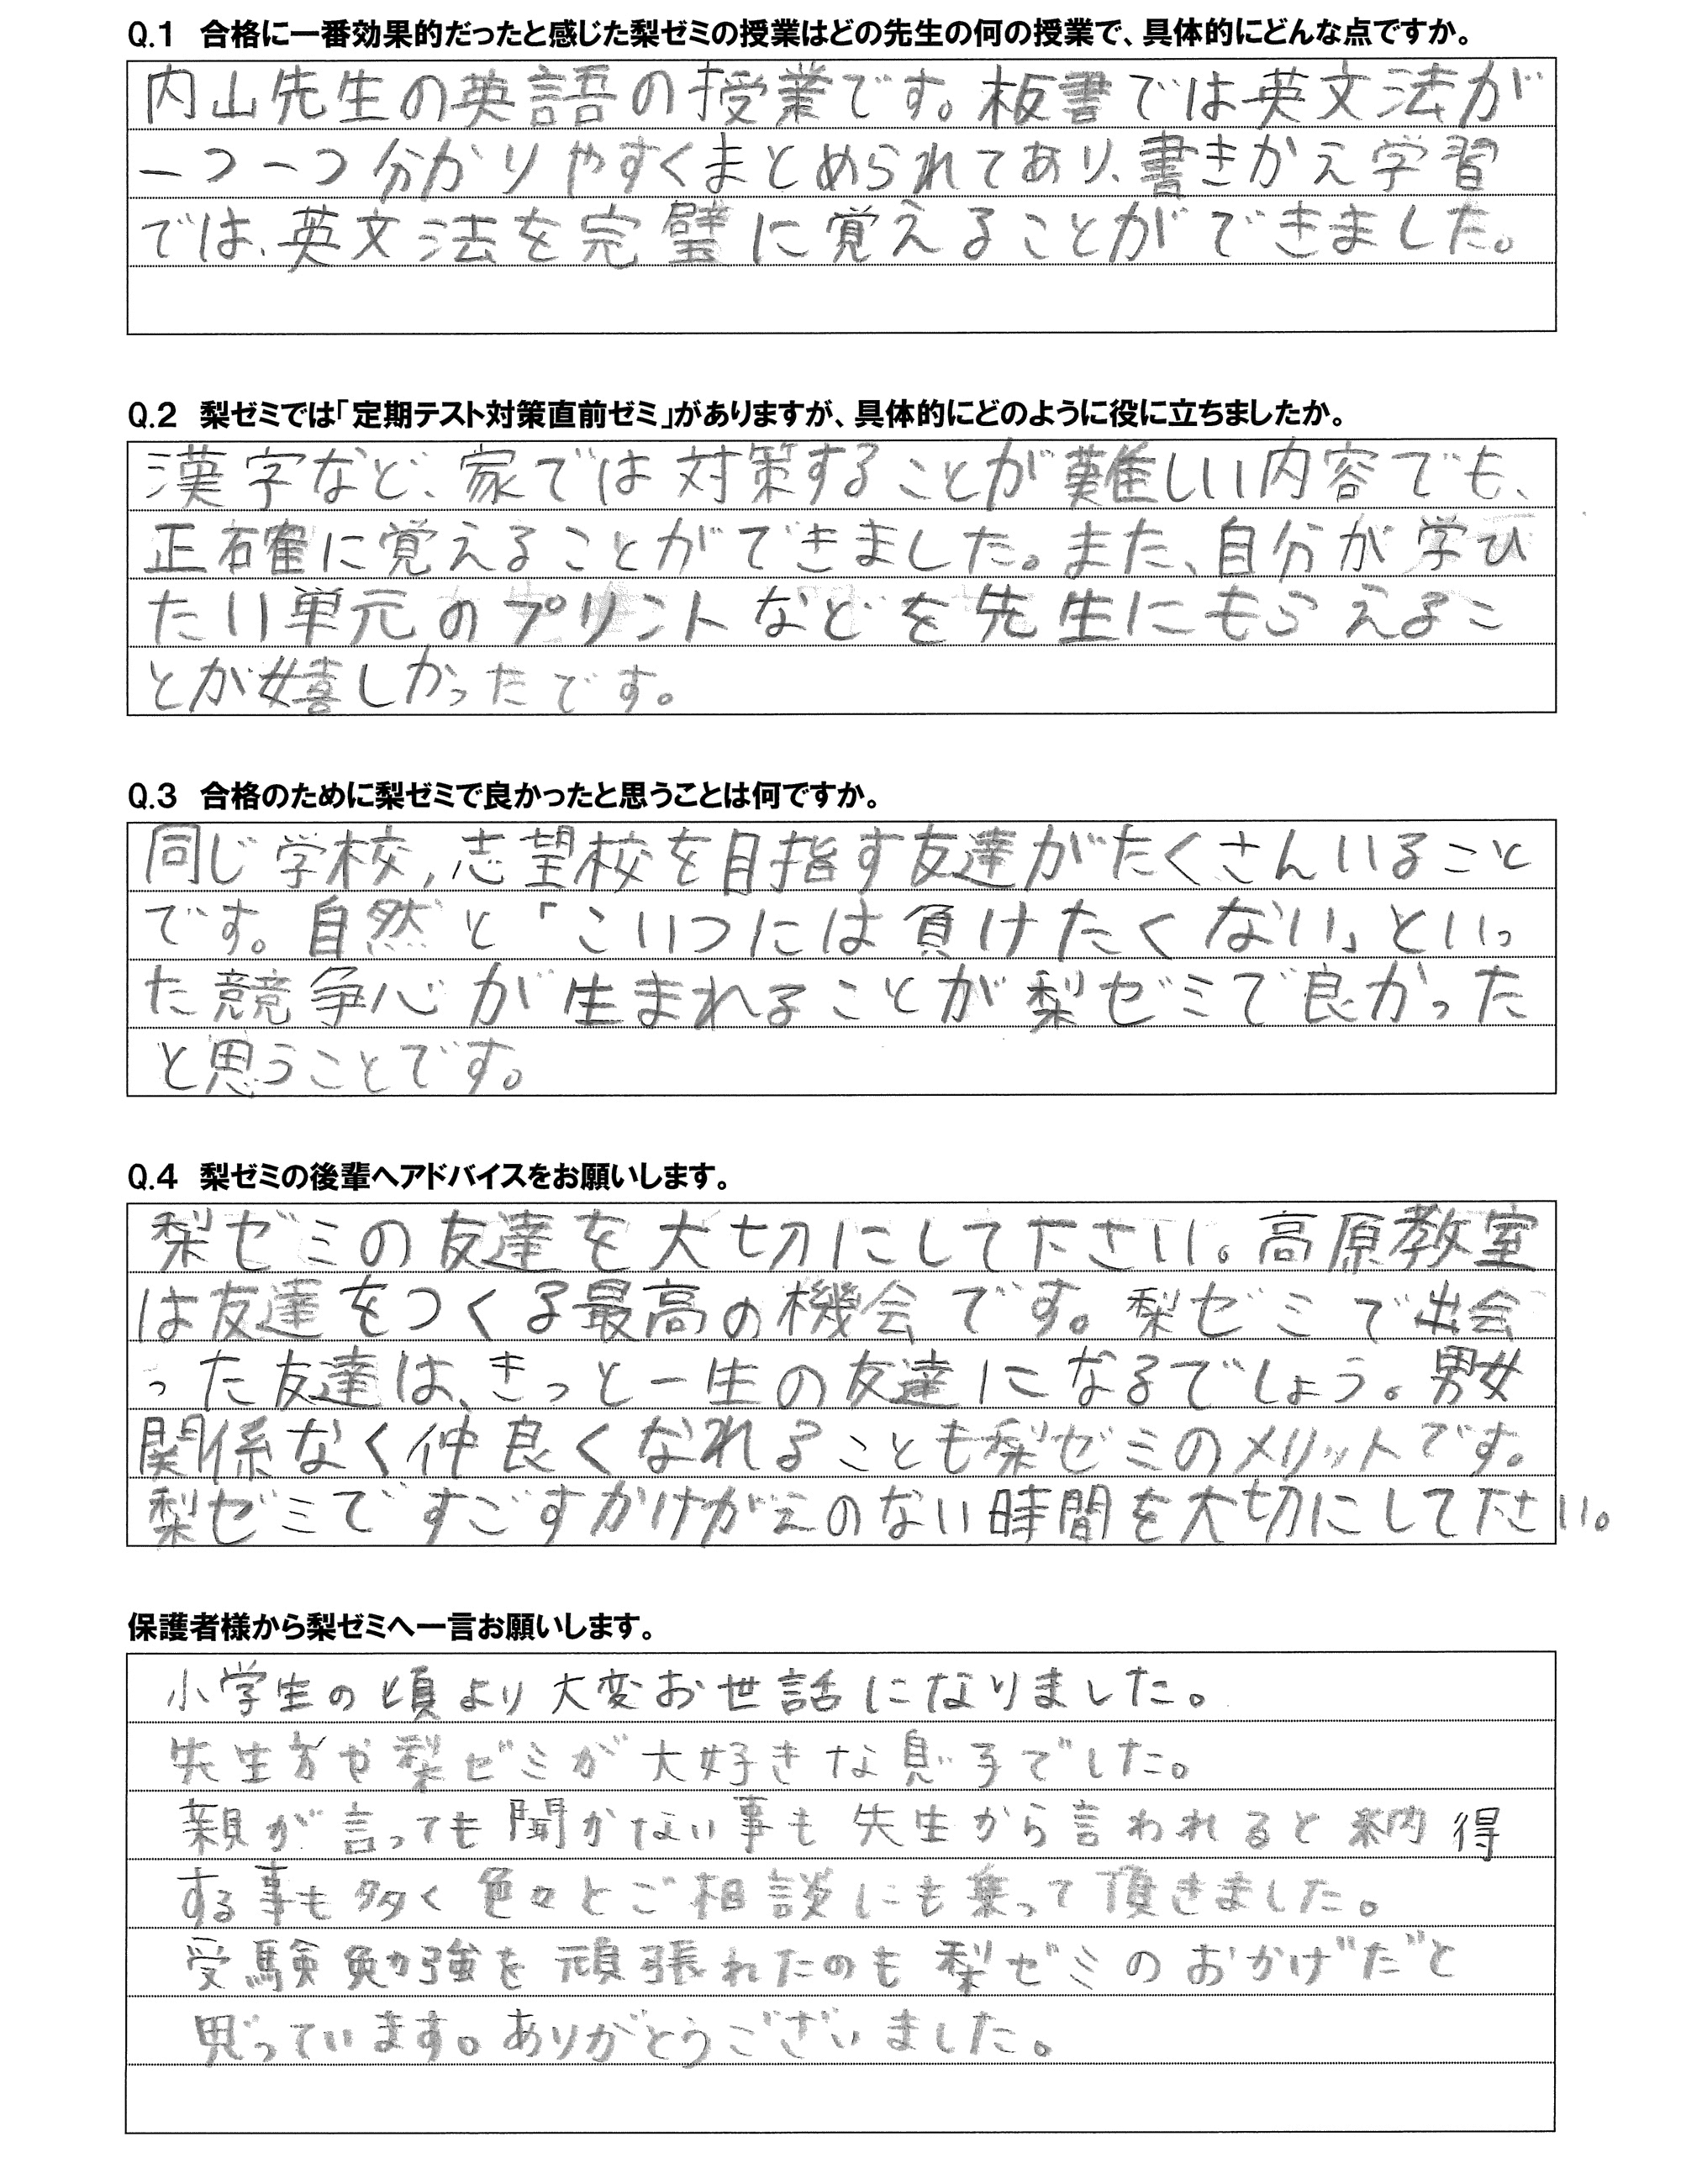 Q.1 合格に一番効果的だったと感じた梨ゼミの授業はどの先生の何の授業で、具体的にどんな点ですか。
内山先生の英語の授業です。板書では英文法が
一つ一つ分かりやすくまとめられてあり、書きかえ学習
では、英文法を完璧に覚えることができました。
Q.2 梨ゼミでは「定期テスト対策直前ゼミ」がありますが、具体的にどのように役に立ちましたか。
漢字など、家では対策することが難しい内容でも、
正確に覚えることができました。また、自分が学び
たい単元のプリントなどを先生にもらえるこ
とが嬉しかったです。
Q.3 合格のために梨ゼミで良かったと思うことは何ですか。
同じ学校,志望校を目指す友達がたくさんいること
です。自然と「こいつには負けたくない」といっ
た競争心が生まれることが梨ゼミで良かった
と思うことです。
Q.4 梨ゼミの後輩へアドバイスをお願いします。
梨ゼミの友達を大切にして下さい。高原教室
は友達をつくる最高の機会です。梨ゼミで出会
った友達は、きっと一生の友達になるでしょう。男女
関係なく仲良くなれることも梨ゼミのメリットです。
梨ゼミですごすかけがえのない時間を大切にして下さい。
保護者様から梨ゼミへ一言お願いします。
小学生の頃より大変お世話になりました。
先生方や梨ゼミが大好きな息子でした。
親が言っても聞かない事も先生から言われると納得
する事も多く色々とご相談にも乗って頂きました。
受験勉強を頑張れたのも梨ゼミのおかげだと
思っています。ありがとうございました。